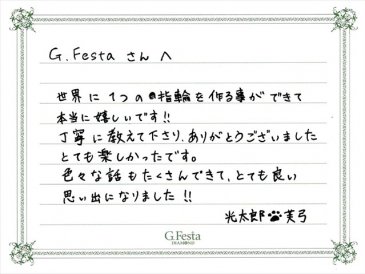 G.Festa さんへ
世界に1つの指輪を作る事ができて
本当に嬉しいです!!
丁寧に教えて下さり、ありがとうございました
とても楽しかったです。
色々な話もたくさんできて、とても良い
思い出になりました!!
光太郎 芙弓
G.Festa
DIAMOND